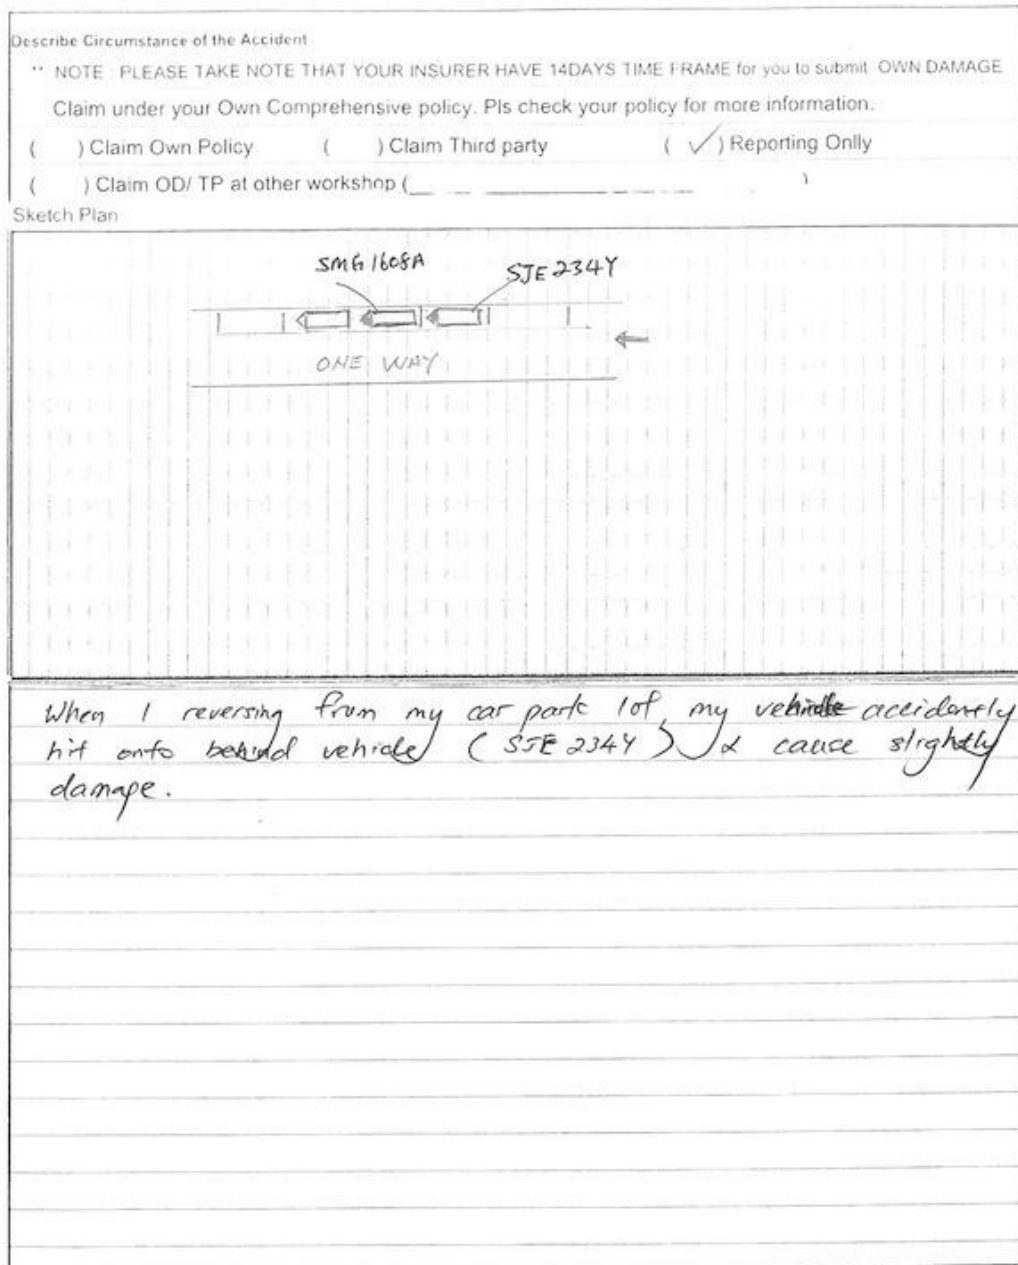 Describe Circumstance of the Accident
** NOTE : PLEASE TAKE NOTE THAT YOUR INSURER HAVE 14DAYS TIME FRAME for you to submit OWN DAMAGE
Claim under your Own Comprehensive policy. Pls check your policy for more information.
( ) Claim Own Policy ( ) Claim Third party ( ✓ ) Reporting Onlly
( ) Claim OD/ TP at other workshop ( )
Sketch Plan
SMG1608A SJE2344
ONE WAY
When I reversing from my car park lot, my vehicle accidently
hit onto behind vehicle (SJE 2344) & cause slightly
damage.